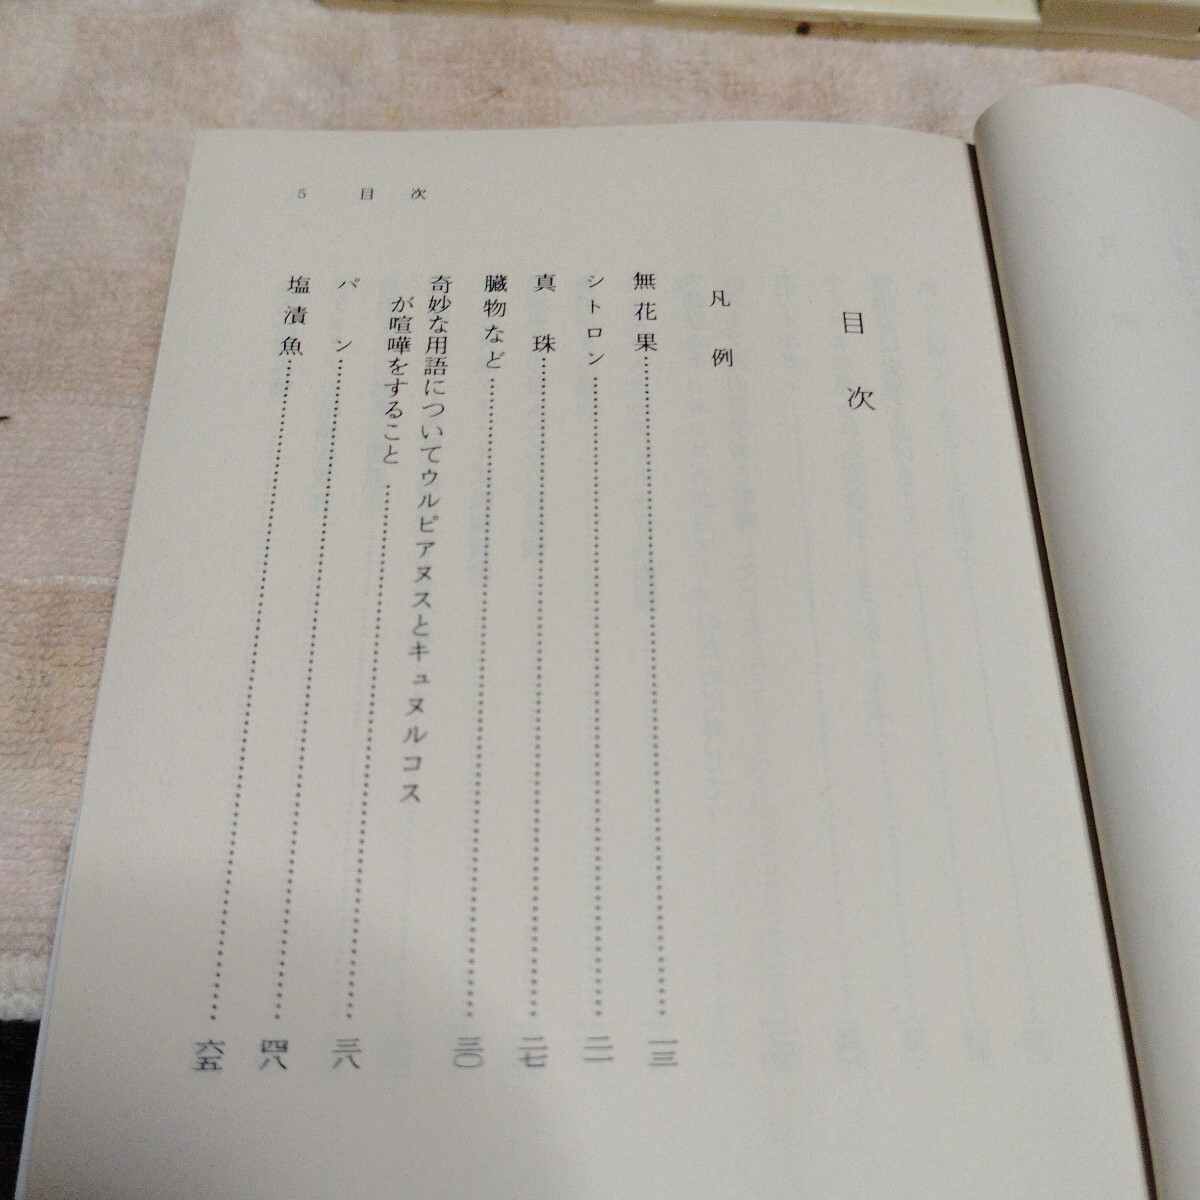 5 目次
目次
凡例
無花果……一三
シトロン……二一
真珠……二七
臓物など……三〇
奇妙な用語についてウルピアヌスとキュヌルコス
が喧嘩をすること……三八
パン……四八
塩漬魚……六五